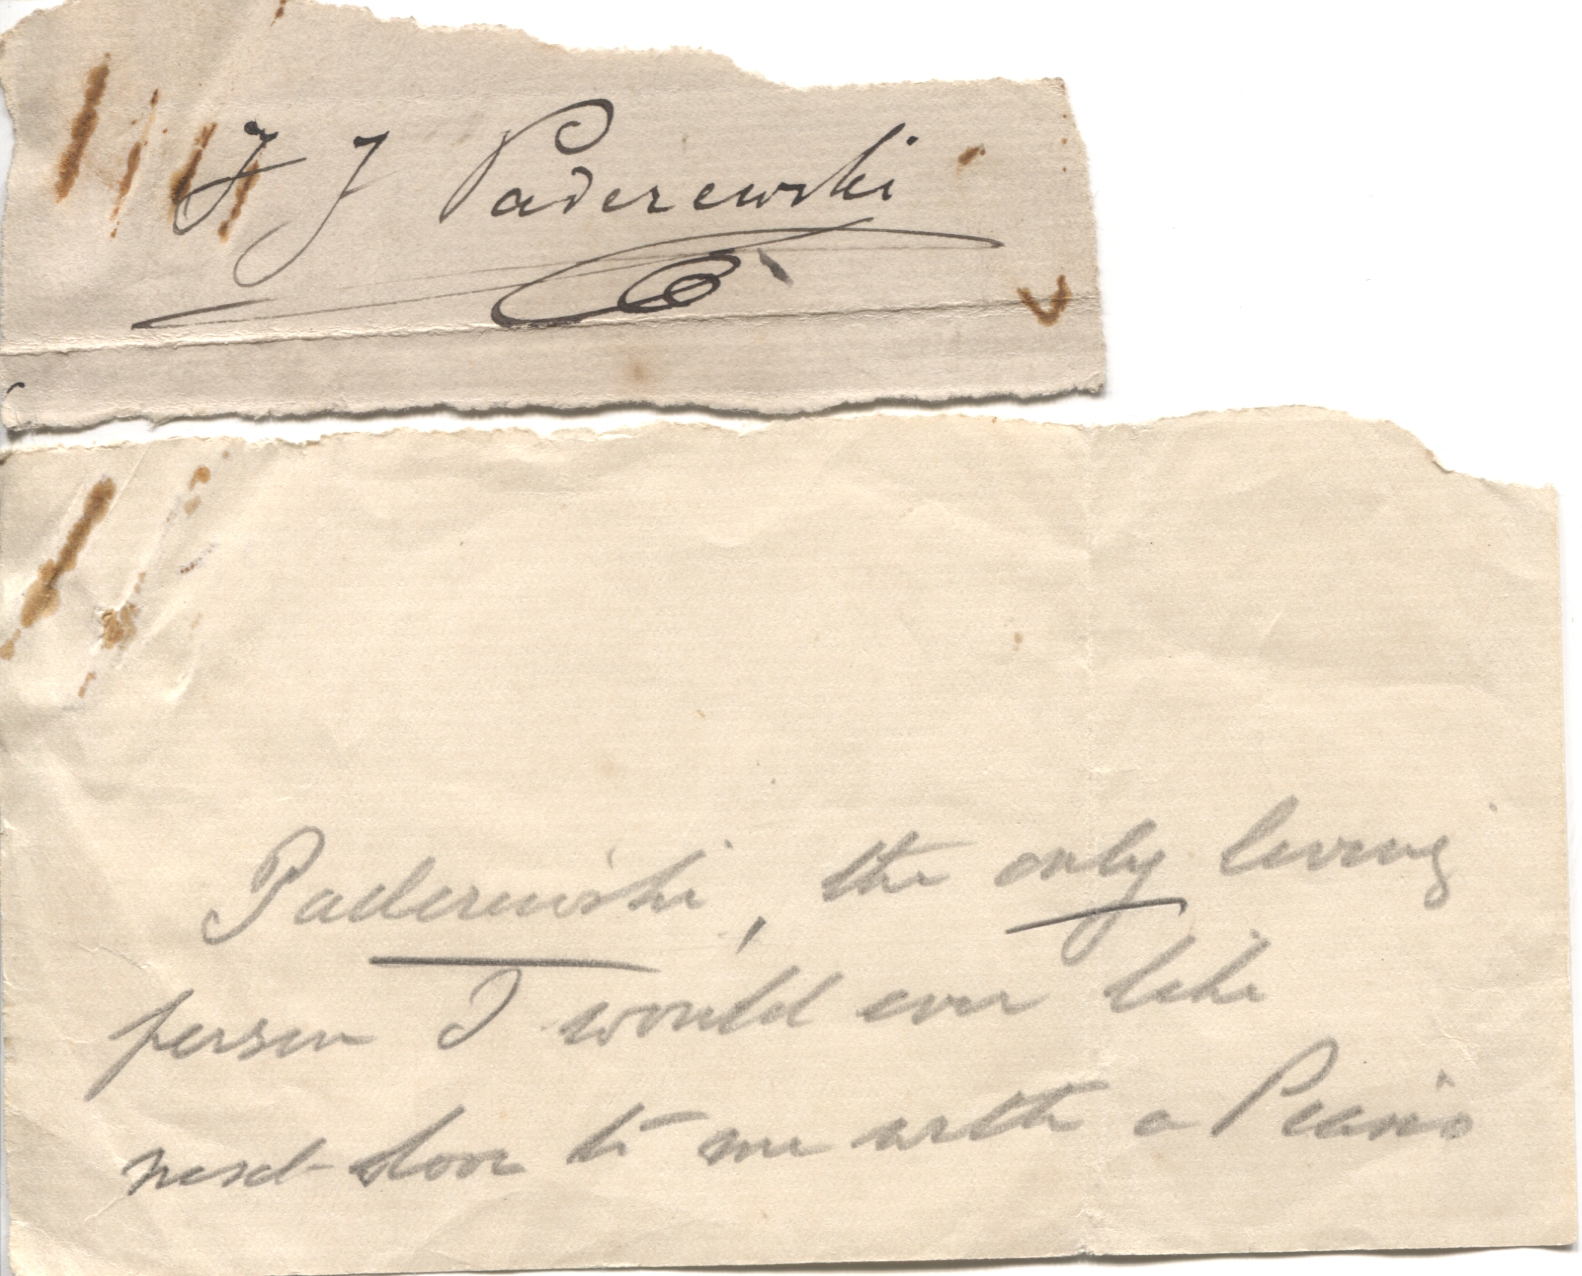 I J Paderewski
Paderewski, the only living
person I would ever like
next-door to me with a Piano